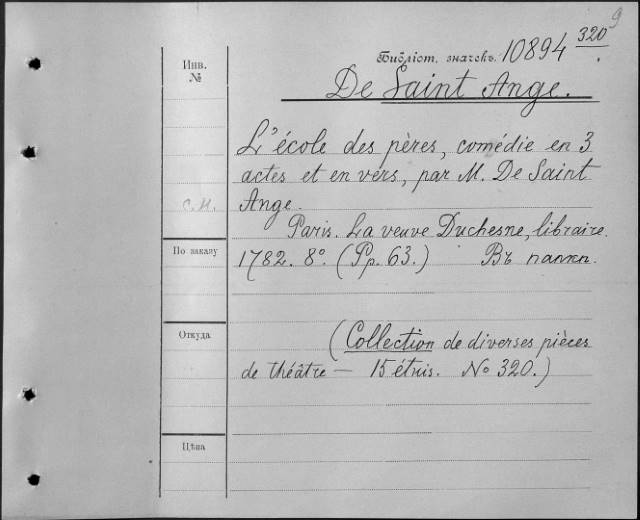 9
Библіот. значекъ. 10894 320
Инв.
№
De Saint Ange.
L'école des pères, comédie en 3
actes et en vers, par M. De Saint
с.н. Ange.
Paris. La veuve Duchesne, libraire.
По заказу
1782. 8°. (Pp. 63.) Въ папкѣ.
Откуда
(Collection de diverses pièces
de théâtre — 15 étuis. No 320.)
Цѣна